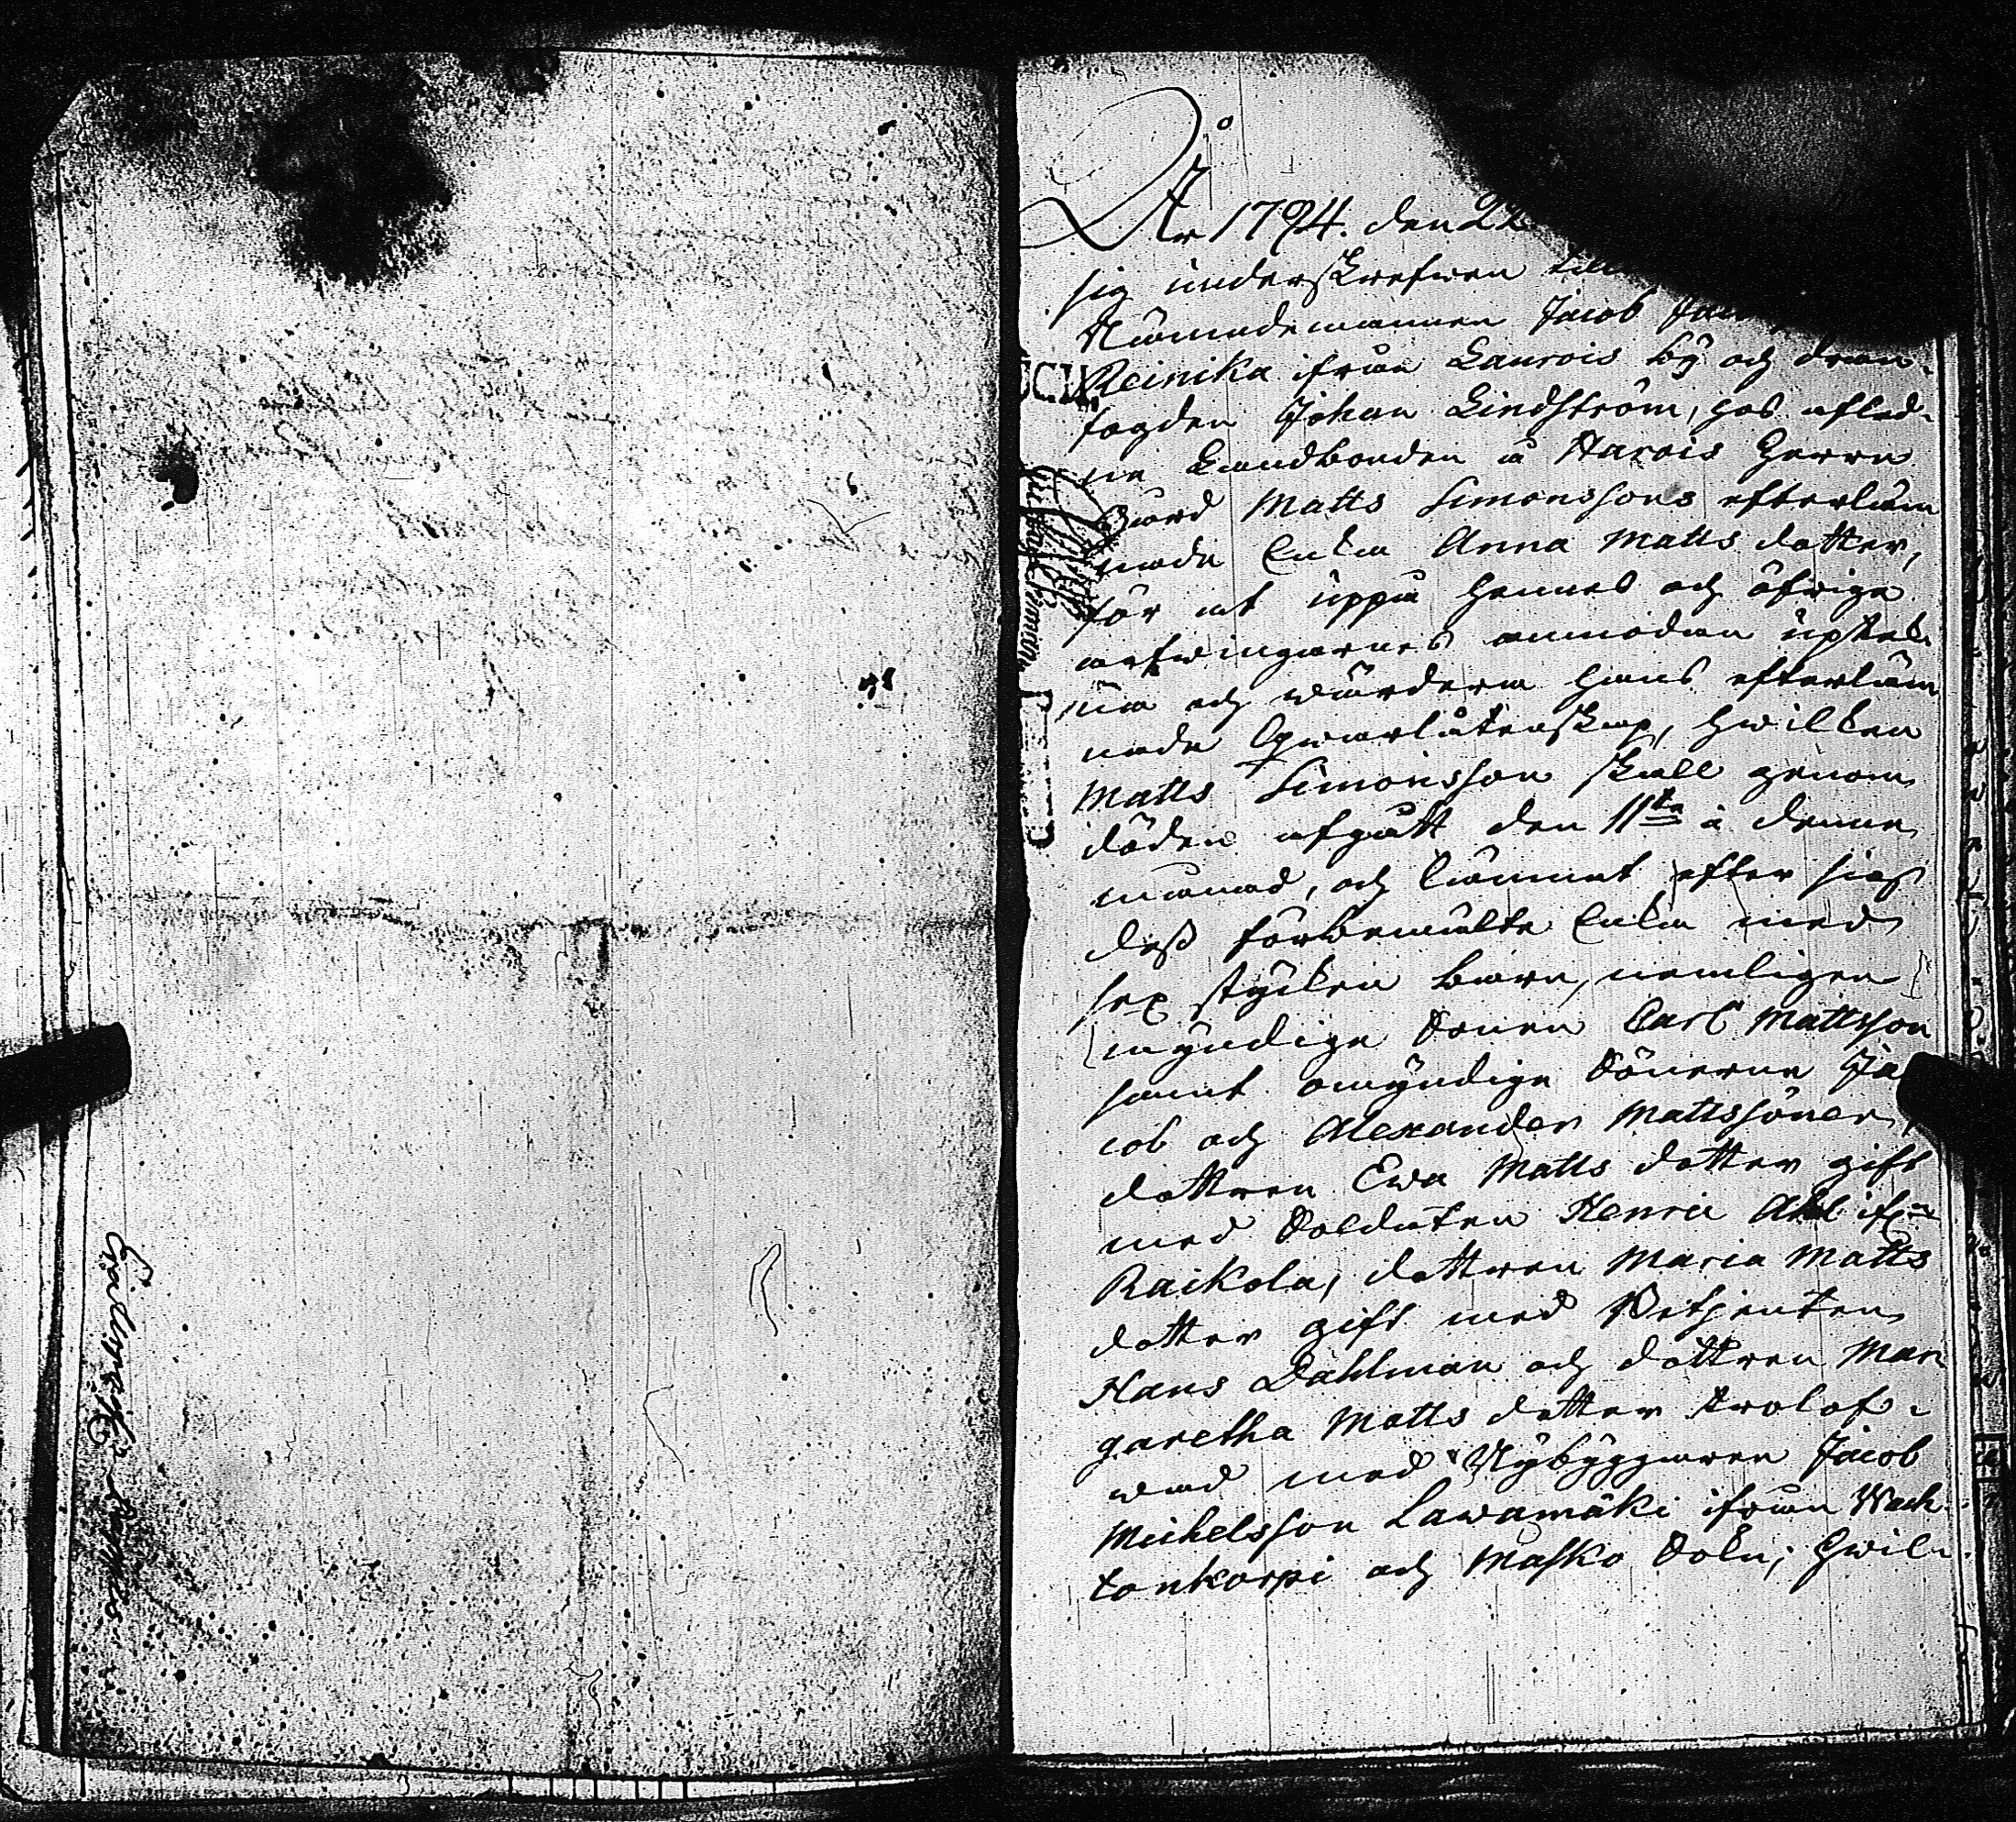 År 1794. den 22
sig underskrefwen till
Nämndemannen Jacob
Reinika ifrån Laurois by och dran-
fogden Johan Lindström, hos afled-
ne Landbonden å Harois Herre
Gård Matts Simonssons efterläm
nade Enka Anna Matts dotter,
för at uppå hennes och öfrige
arfwingarnes anmodan uptek-
na och wärdera hans efterläm
nade Qwarlåtenskap, hwilken
Matts Simonsson skall genom
döden afgått den 11te i denne
månad, och lämnat efter sig
dess förbemälte Enka med
sex stycken barn, nemligen
myndige Sonen Carl Mattsson
samt omyndige Sönerne Ja
cob och Alexander Mattssöner,
dottren Ewa Matts dotter gift
med Soldaten Henric Ahl ifrån
Raikola, dottren Maria Matts
dotter gift med Refsenten
Hans Dahlman och dottren Mar
garetha Matts dotter trolof-
wad med Nybyggaren Jacob
Michelsson Lawamäki ifrån Wach-
tonkorpi och Masko Sokn; hwil-